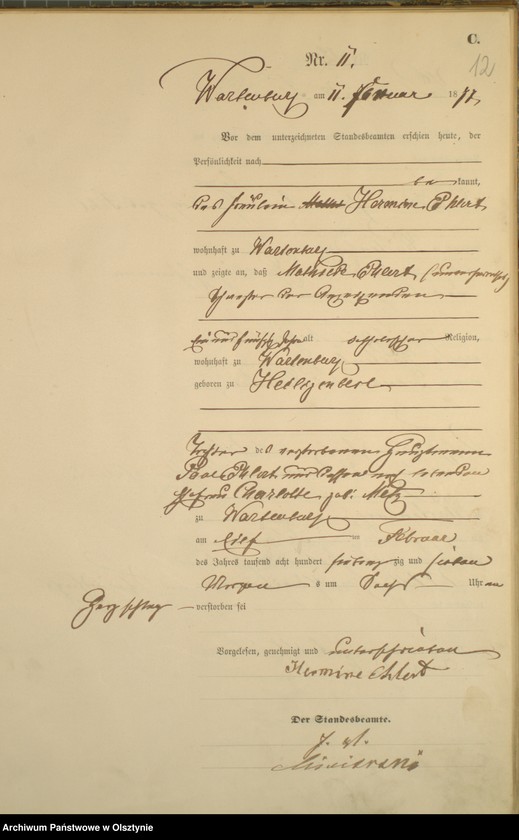 C.
12
Nr. 11.
Wartenburg am 11. Februar 1877
Vor dem unterzeichneten Standesbeamten erschien heute, der
Persönlichkeit nach
bekannt,
das Fräulein Hermine Ehlert
wohnhaft zu Wartenburg
und zeigte an, daß Mathilde Ehlert
Schwester der Anzeigenden
alt katholischer Religion,
wohnhaft zu Wartenburg
geboren zu Heiligenbeil
Tochter des verstorbenen Hauptmann
Ehlert und dessen
Ehefrau Charlotte geb. Metz
zu Wartenburg
am elf ten Februar
des Jahres tausend acht hundert siebenzig und sieben
Morgens um sechs Uhr an
Herzschlag verstorben sei
Vorgelesen, genehmigt und unterschrieben
Hermine Ehlert
Der Standesbeamte.
Archiwum Państwowe w Olsztynie